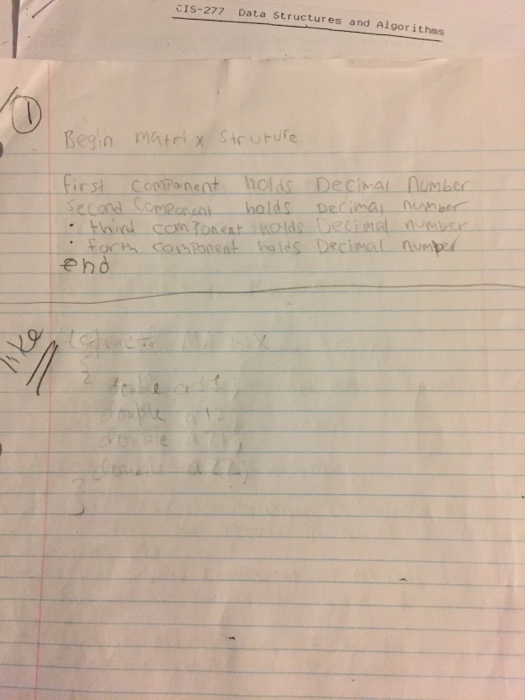 CIS-277 Data Structures and Algorithms
1
Begin matrix Struture
first component holds Decimal Number
Second Component holds Decimal number
• third component holds Decimal number
• forth component holds Decimal number
end
like
{
double a11;
double a12
double a21;
double a22;
}